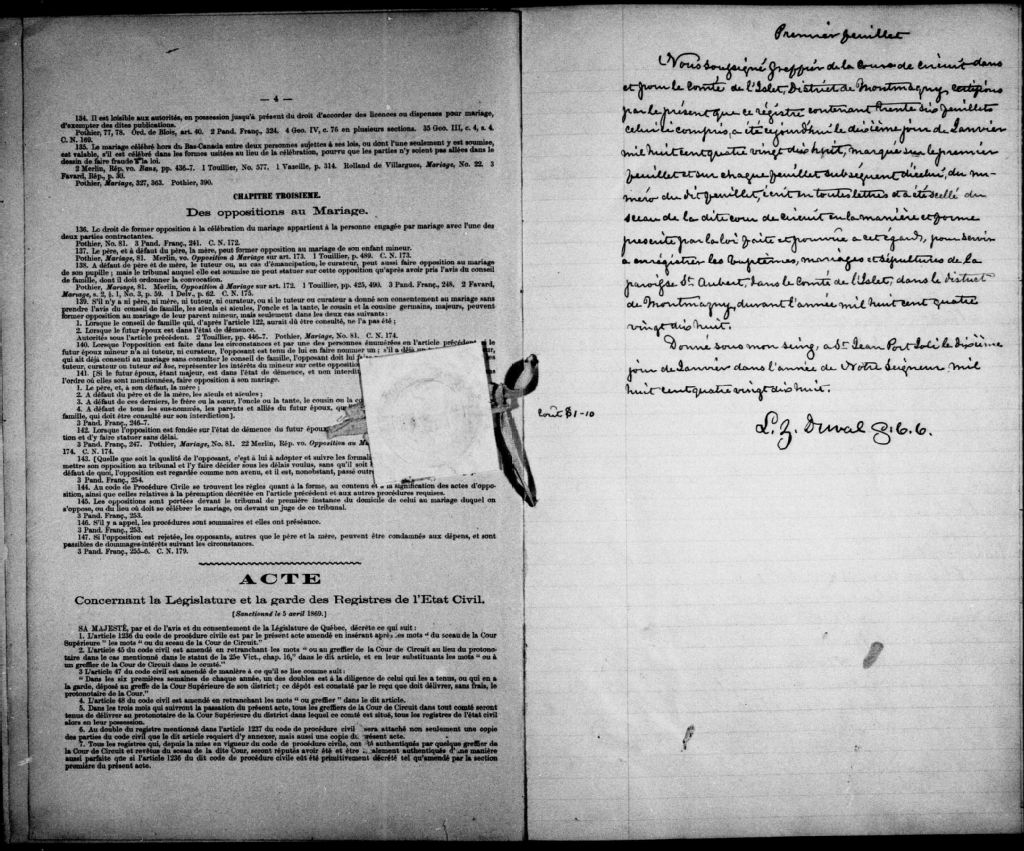 — 4 —
134. Il est loisible aux autorités, en possession jusqu'à présent du droit d'accorder des licences ou dispenses pour mariage,
d'exempter des dites publications.
Pothier, 77, 78. Ord. de Blois, art. 40. 2 Pand. Franç., 324. 4 Geo. IV, c. 76 en plusieurs sections. 35 Geo. III, c. 4, s. 4.
C. N. 169.
135. Le mariage célébré hors du Bas-Canada entre deux personnes sujettes à ses lois, ou dont l'une seulement y est soumise,
est valable, s'il est célébré dans les formes usitées au lieu de la célébration, pourvu que les parties n'y soient pas allées dans le
dessin de faire fraude à la loi.
2 Merlin, Rép. vo. Bans, pp. 436-7. 1 Touillier, No. 577. 1 Vazeille, p. 314. Rolland de Villargues, Mariage, No. 22. 3
Favard, Rép., p. 50.
Pothier, Mariage, 327, 363. Pothier, 390.
CHAPITRE TROISIEME.
Des oppositions au Mariage.
136. Le droit de former opposition à la célébration du mariage appartient à la personne engagée par mariage avec l'une des
deux parties contractantes.
Pothier, No. 81. 3 Pand. Franç., 241. C. N. 172.
137. Le père, et à défaut du père, la mère, peut former opposition au mariage de son enfant mineur.
Pothier, Mariage, 81. Merlin, vo. Opposition à Mariage sur art. 173. 1 Touillier, p. 489. C. N. 173.
138. A défaut de père et de mère, le tuteur ou, au cas d'émancipation, le curateur, peut aussi faire opposition au mariage
de son pupille; mais le tribunal auquel elle est soumise ne peut statuer sur cette opposition qu'après avoir pris l'avis du conseil
de famille, dont il doit ordonner la convocation.
Pothier, Mariage, 81. Merlin, Opposition à Mariage sur art. 172. 1 Touillier, pp. 425, 490. 3 Pand. Franç., 248. 2 Favard,
Mariage, s. 2, § 1, No. 3, p. 59. 1 Delv., p. 62. C. N. 175.
139. S'il n'y a ni père, ni mère, ni tuteur, ni curateur, ou si le tuteur ou curateur a donné son consentement au mariage sans
prendre l'avis du conseil de famille, les aïeuls et aïeules, l'oncle et la tante, le cousin et la cousine germains, majeurs, peuvent
former opposition au mariage de leur parent mineur, mais seulement dans les deux cas suivants:
1. Lorsque le conseil de famille qui, d'après l'article 122, aurait dû être consulté, ne l'a pas été;
2. Lorsque le futur époux est dans l'état de démence.
Autorités sous l'article précédent. 2 Touillier, pp. 446-7. Pothier, Mariage, No. 81. C. N. 174.
140. Lorsque l'opposition est faite dans les circonstances et par une des personnes énumérées en l'article précédent, si le
futur époux mineur n'a ni tuteur, ni curateur, l'opposant est tenu de lui en faire nommer un; s'il a déjà
qui ait déjà consenti au mariage sans consulter le conseil de famille, l'opposant doit lui
tuteur, curateur ou tuteur ad hoc, représenter les intérêts du mineur sur cette opposition
141. [Si le futur époux, étant majeur, est dans l'état de démence, et non interdit
l'ordre où elles sont mentionnées, faire opposition à son mariage.
1. Le père, et, à son défaut, la mère;
2. A défaut du père et de la mère, les aïeuls et aïeules;
3. A défaut de ces derniers, le frère ou la sœur, l'oncle ou la tante, le cousin ou la
4. A défaut de tous les sus-nommés, les parents et alliés du futur époux, qu
famille, qui doit être consulté sur son interdiction].
3 Pand. Franç., 246-7.
142. Lorsque l'opposition est fondée sur l'état de démence du futur époux
tion et d'y faire statuer sans délai.
3 Pand. Franç., 247. Pothier, Mariage, No. 81. 22 Merlin, Rép. vo. Opposition au Ma
174. C. N. 174.
143. [Quelle que soit la qualité de l'opposant, c'est à lui à adopter et suivre les formali
mettre son opposition au tribunal et l'y faire décider sous les délais voulus, sans qu'il soit
défaut de quoi, l'opposition est regardée comme non avenue, et il est, nonobstant, passé outre
3 Pand. Franç., 254.
144. Au code de Procédure Civile se trouvent les règles quant à la forme, au contenu et à la signification des actes d'oppo-
sition, ainsi que celles relatives à la péremption décrétée en l'article précédent et aux autres procédures requises.
145. Les oppositions sont portées devant le tribunal de première instance du domicile de celui au mariage duquel on
s'oppose, ou du lieu où doit se célébrer le mariage, ou devant un juge de ce tribunal.
3 Pand. Franç., 253.
146. S'il y a appel, les procédures sont sommaires et elles ont préséance.
3 Pand. Franç., 253.
147. Si l'opposition est rejetée, les opposants, autres que le père et la mère, peuvent être condamnés aux dépens, et sont
passibles de dommages-intérêts suivant les circonstances.
3 Pand. Franç., 255-6. C. N. 179.
ACTE
Concernant la Législature et la garde des Registres de l'Etat Civil.
[Sanctionné le 5 avril 1869.]
SA MAJESTÉ, par et de l'avis et du consentement de la Législature de Québec, décrète ce qui suit:
1. L'article 1236 du code de procédure civile est par le présent acte amendé en insérant après les mots " du sceau de la Cour
Supérieure " les mots " ou du sceau de la Cour de Circuit."
2. L'article 45 du code civil est amendé en retranchant les mots " ou au greffier de la Cour de Circuit au lieu du protono-
taire dans le cas mentionné dans le statut de la 25e Vict., chap. 16," dans le dit article, et en leur substituant les mots " ou à
un greffier de la Cour de Circuit dans le comté."
3 L'article 47 du code civil est amendé de manière à ce qu'il se lise comme suit:
" Dans les six premières semaines de chaque année, un des doubles est à la diligence de celui qui les a tenus, ou qui en a
la garde, déposé au greffe de la Cour Supérieure de son district; ce dépôt est constaté par le reçu que doit délivrer, sans frais, le
protonotaire de la Cour."
4. L'article 48 du code civil est amendé en retranchant les mots " ou greffier " dans le dit article.
5. Dans les trois mois qui suivront la passation du présent acte, tous les greffiers de la Cour de Circuit dans tout comté seront
tenus de délivrer au protonotaire de la Cour Supérieure du district dans lequel ce comté est situé, tous les registres de l'état civil
alors en leur possession.
6. Au double du registre mentionné dans l'article 1237 du code de procédure civil sera attaché non seulement une copie
des parties du code civile que le dit article requiert d'y annexer, mais aussi une copie du présent acte.
7. Tous les registres qui, depuis la mise en vigueur du code de procédure civile, ont été authentiqués par quelque greffier de
la Cour de Circuit et revêtus du sceau de la dite Cour, seront réputés avoir été et être également authentiqués d'une manière
aussi parfaite que si l'article 1236 du dit code de procédure civile eût été primitivement décrété tel qu'amendé par la section
première du présent acte.
Premier feuillet
Nous soussigné greffier de la cour de circuit dans
et pour le Comté de l'Islet, District de Montmagny, certifions
par le présent que ce régistre contenant trente six feuillets
celui ci compris, a été ce jourd'hui le dixième jour de Janvier
mil huit cent quatre vingt dix huit, marqué sur le premier
feuillet et sur chaque feuillet subséquent d'icelui, du nu-
méro du dit feuillet, écrit en toutes lettres et a été scellé du
sceau de la dite cour de circuit en la manière et forme
prescrite par la loi faite et pourvue a cet égard, pour servir
a enregistrer les Baptêmes, mariages et sépultures de la
paroisse St. Aubert, dans le Comté de l'Islet, dans le district
de Montmagny, durant l'année mil huit cent quatre
vingt dix huit.
Donné sous mon seing, a St. Jean Port Joli le Dixième
jour de Janvier dans l'année de Notre Seigneur mil
huit cent quatre vingt dix huit.
Coût $1-10
L. Z. Duval G. C. C.